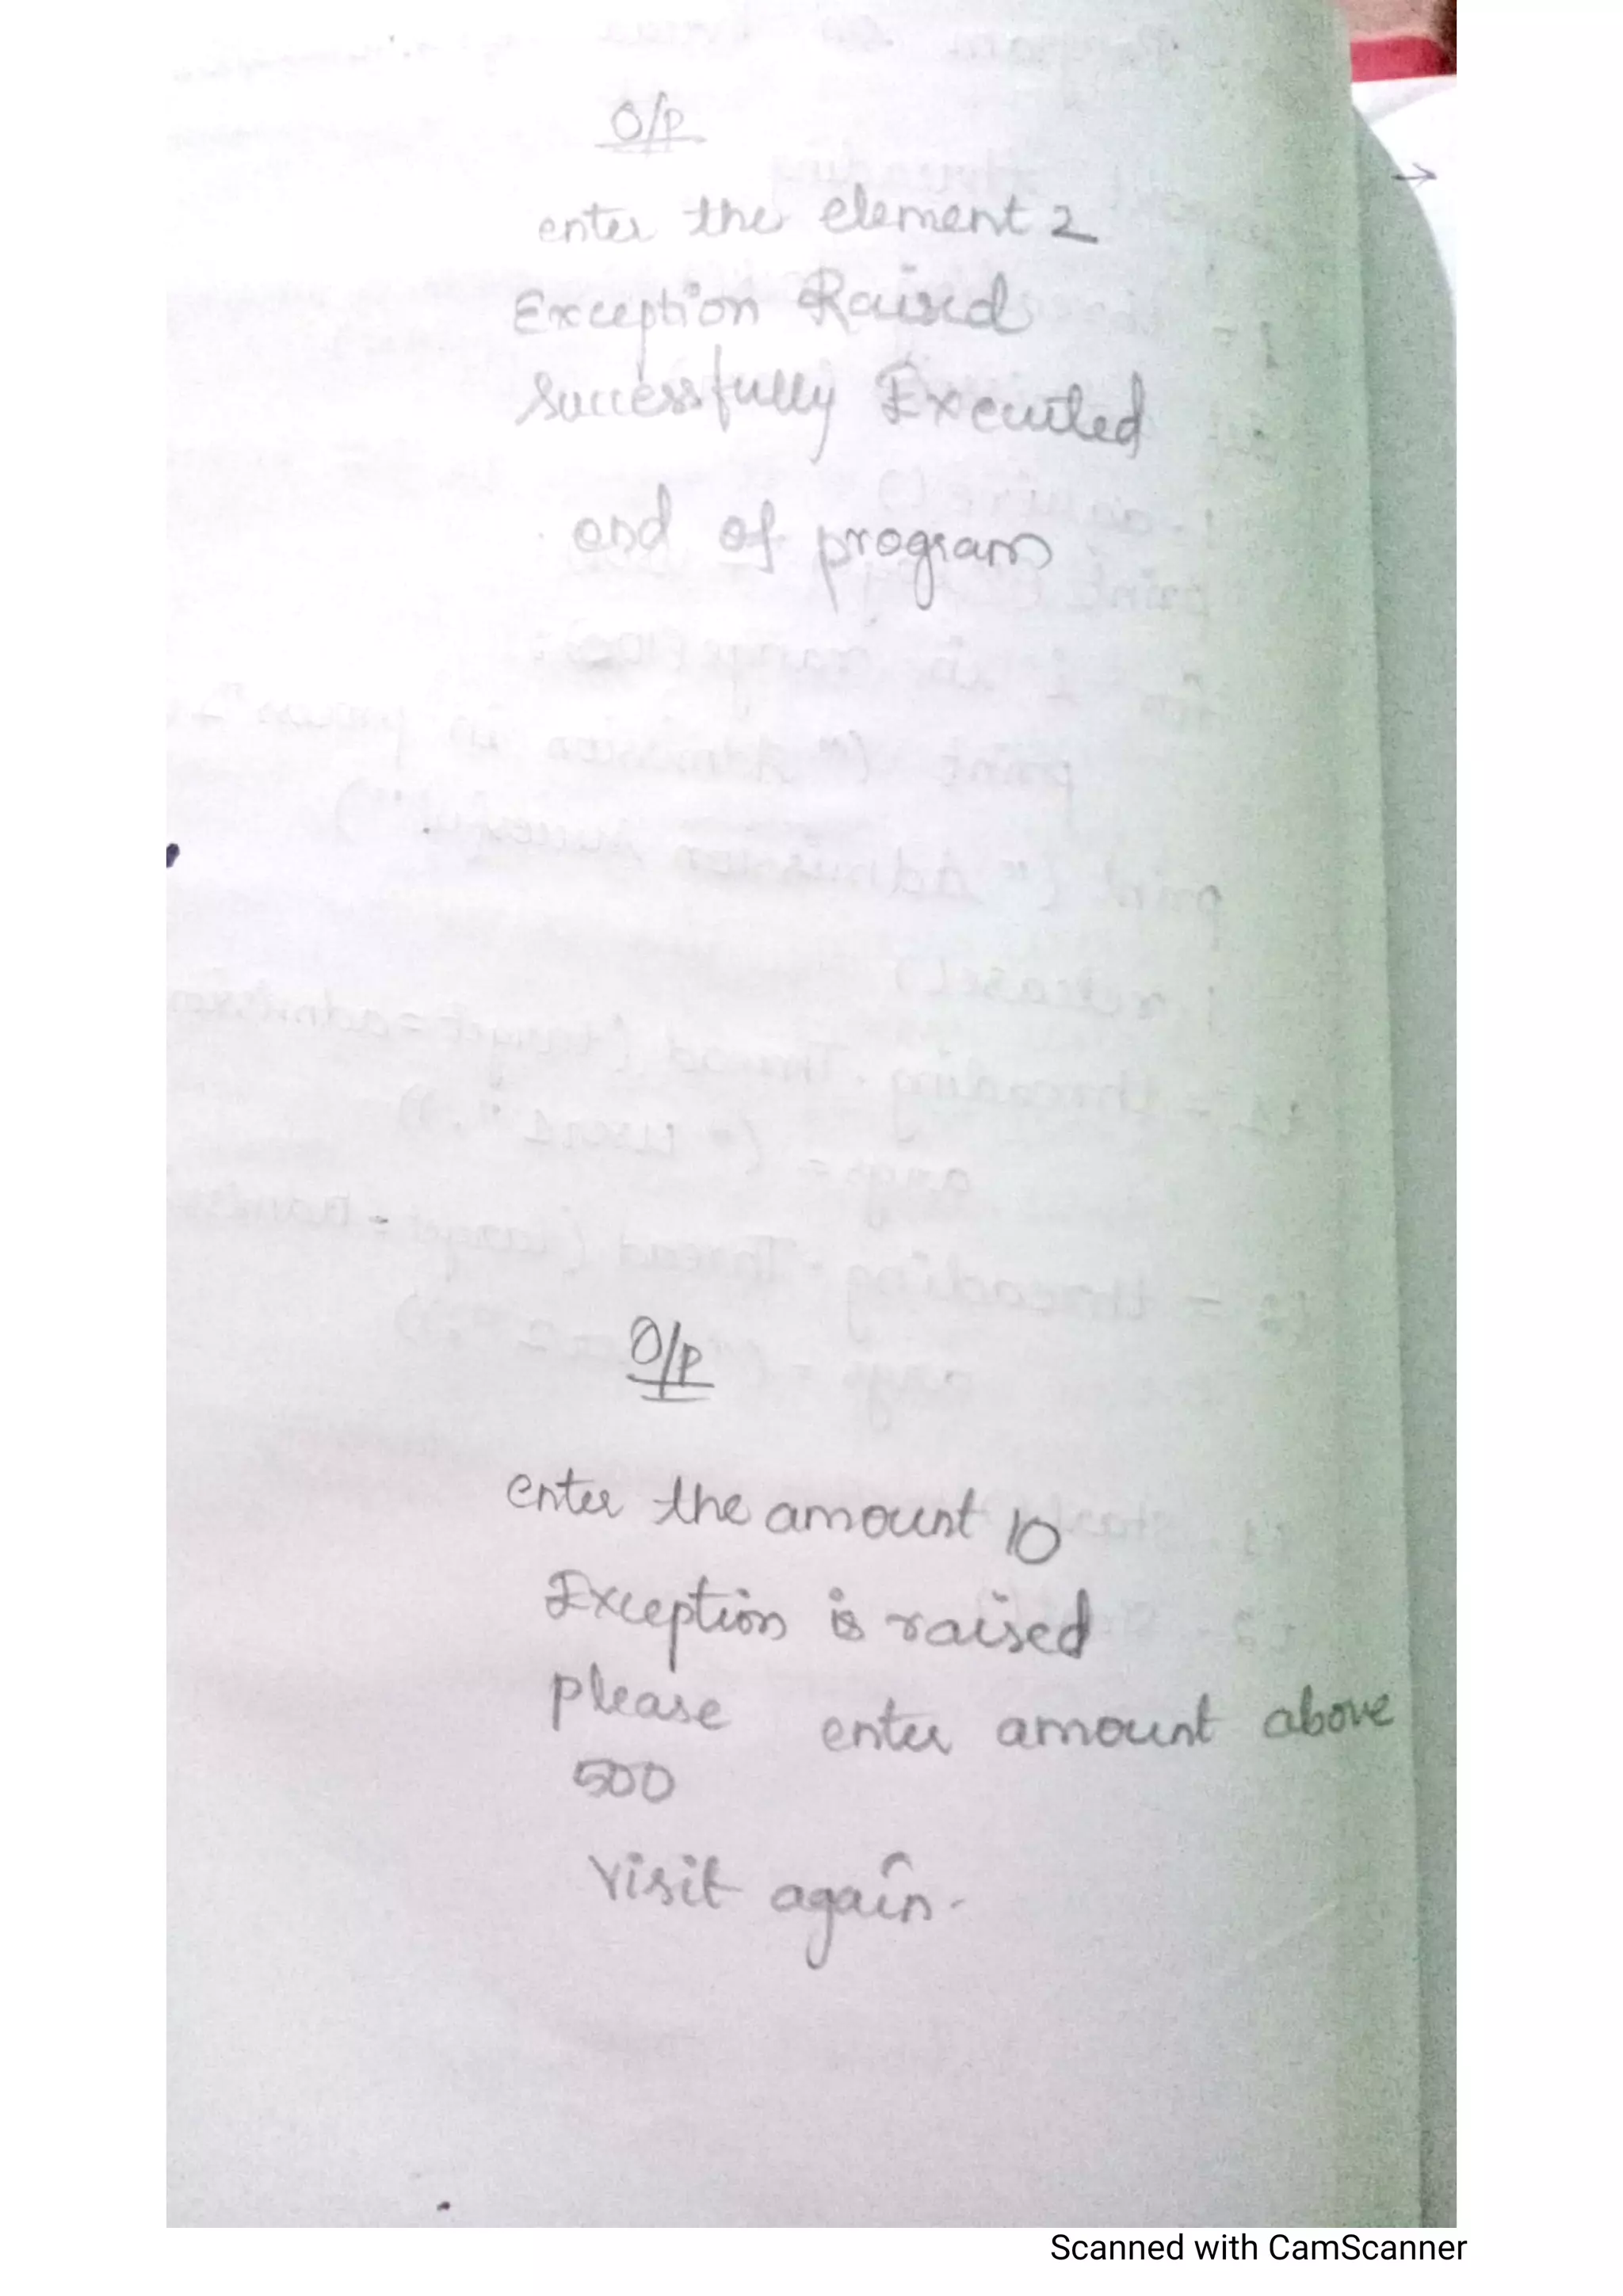 O/P
enter the element 2
Exception Raised
Successfully Executed
end of program
O/P
enter the amount 10
Exception is raised
please enter amount above
500
Visit again.
Scanned with CamScanner